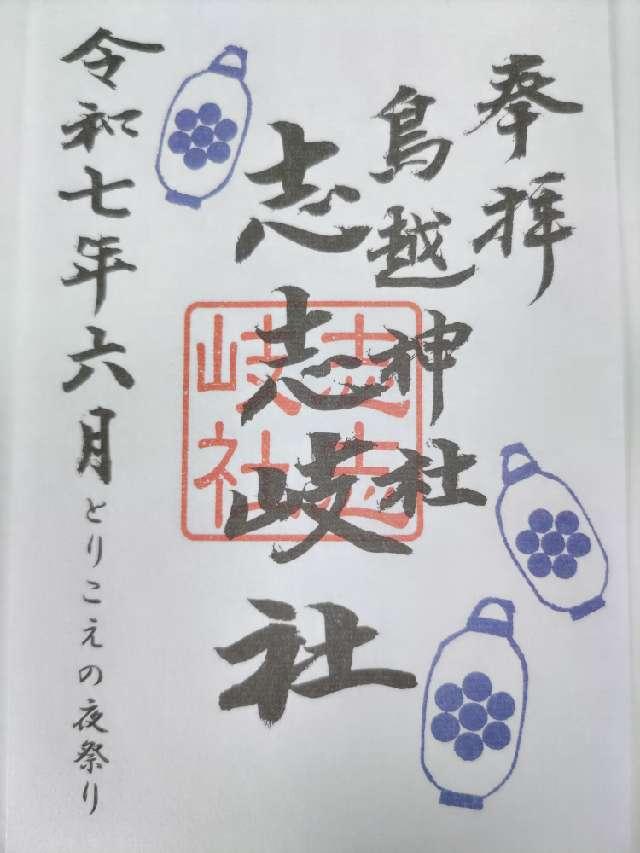 奉拝
鳥越神社
志志岐社
志志
岐社
令和七年六月とりこえの夜祭り